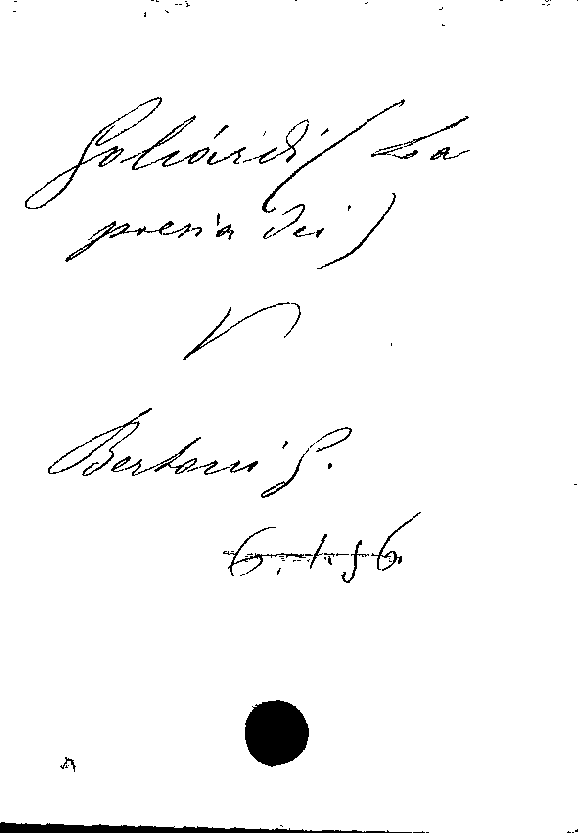 Goliardi (La
poesia dei)
V
Bertoni G.
6.1.56.